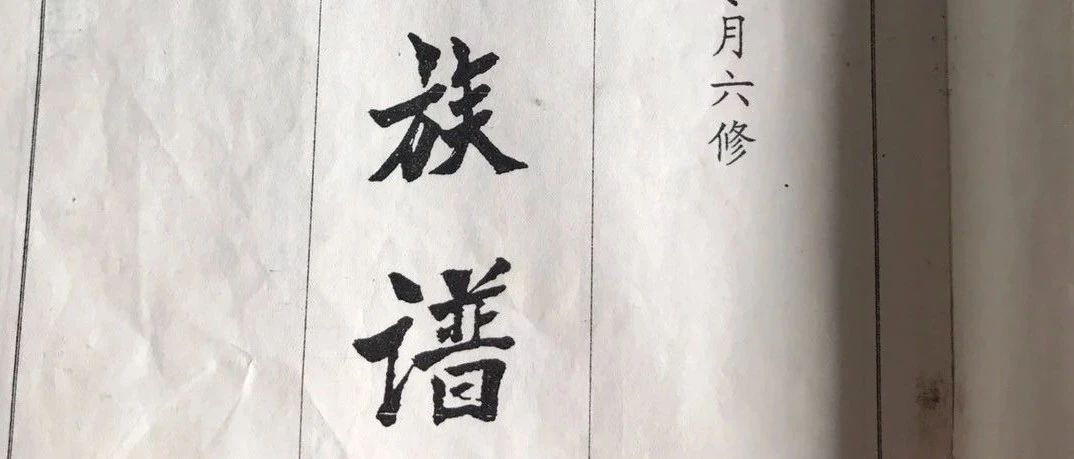 月六修
族谱